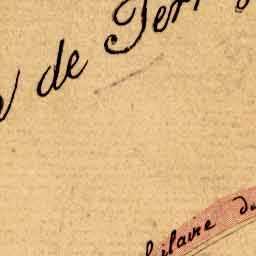 de Ter
hilaire du